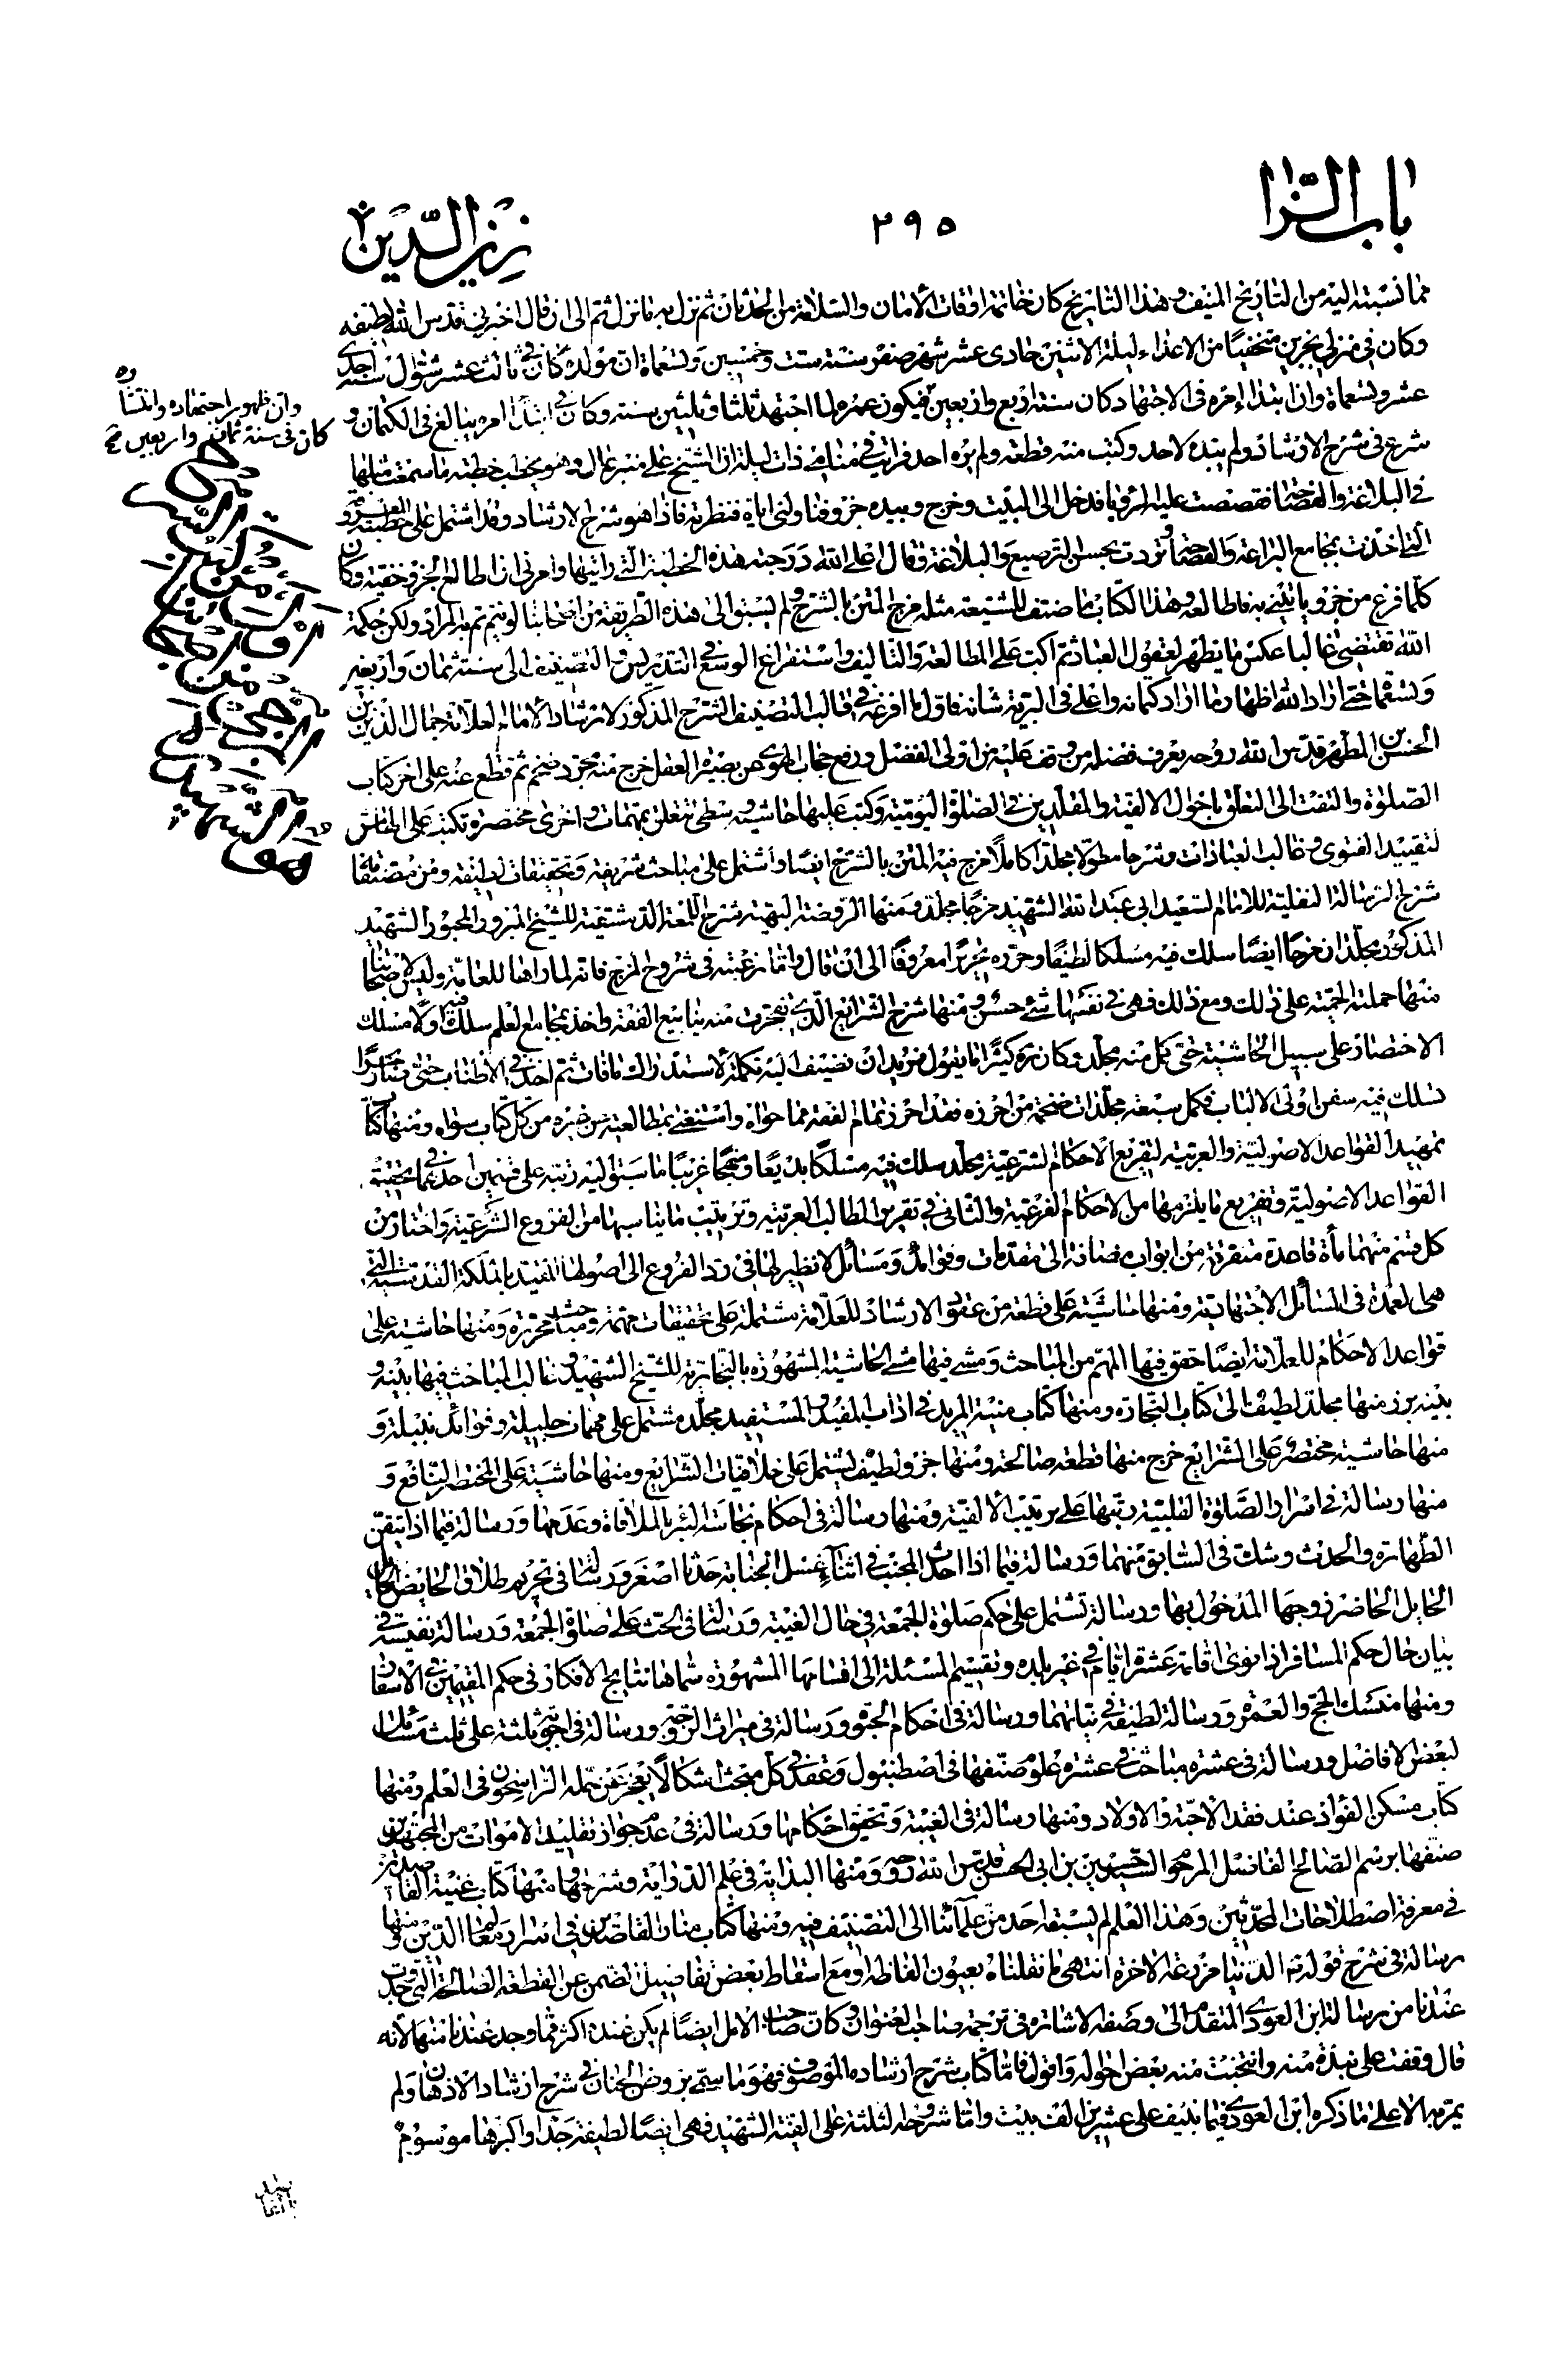 باب الزّا
٢٩٥
زين الدّين
مما نسبته اليه من التاريخ المنيف وهذا التاريخ كان خاتمة اوقات الأمان والسّلامة من الحدثان ثم نزل به ما نزل ثم الى ان قال اخبرني قدس الله لطيفه
وكان في منزلي بجزين متخفيًا من الاعداء ليلة الاثنين حادى عشر شهر صفر سنة ست وخمسين وتسعمأة ان مولده كان في ثالث عشر شوّال سنة احدى
عشر وتسعمأة وان ابتداء امره في الاجتهاد كان سنة اربع واربعين فيكون عمره لما اجتهد ثلثا وثلثين سنة وكان في ابتداء امره يبالغ في الكتمان و
شرع في شرح الارشاد ولم يبده لاحد وكتب منه قطعة ولم يره احد فرايت في منامي ذات ليلة ان الشيخ على منبر عال وهو يخطب خطبة ما سمعت مثلها
في البلاغة والفصاحة فقصصت عليه الرؤيا فدخل الى البيت وخرج وبيده جزو فناولني اياه فنظرته فاذا هو شرح الارشاد وقد اشتمل على خطبته المعروفة
التي اخذت بمجامع البراعة والفصاحة وتردت بحسن الترصيع والبلاغة وقال اعلى الله درجته هذه الخطبة التي رايتها وامرني ان اطالع الجزو خفية وكان
كلما فرغ من جزو ياتيني به فاطالعه وهذا الكتاب ما صنف للشيعة مثله مزج المتن بالشرح ولم يسبق الى هذه الطريقة من اصحابنا لو تيمّم تم به المراد ولكن حكمة
الله تقتضي غالبا عكس ما يظهر لعقول العباد ثم اكب على المطالعة والتاليف واستفراغ الوسع في التدريس والتصنيف الى سنة ثمان واربعين
وتسعمأة حتى اراد الله اظهار ما اراد كتمانه واعلى في البرية شانه فاول ما افرغه في قالب التصنيف الشرح المذكور لارشاد الأمام العلامة جمال الدين
الحسن بن المطهر قدس الله روحه يعرف فضله من وقف عليه من اولى الفضل ورفع حجاب الهوى عن بصيرة العقل خرج منه مجلد ضخم ثم قطع عنه على اخر كتاب
الصلوة والتفت الى التعلق باحوال الالفية والمقلدين في الصلوة اليومية وكتب عليها حاشية وسطى تتعلق بمهمات واخرى مختصرة تكتب على الهامش
لتقييد الفتوى وغالب العبادات وشرحا مطولا مجلدا كاملا مزج فيه المتن بالشرح ايضا واشتمل على مباحث شريفة وتحقيقات لطيفة ومن مصنفاته
شرح الرسالة النفلية للامام السعيد ابي عبد الله الشهيد مزجًا مجلد ومنها الروضة البهية شرح اللمعة الدمشقية للشيخ المبرور المحبور الشهيد
المذكور مجلدان مزجًا ايضًا سلك فيه مسلكا لطيفًا وحرّره تحريرًا معروفًا الى ان قال وانما رغبته في شروح المزج فانه لما راها للعامة وليس لاصحابنا
منها حملته الحمية على ذلك ومع ذلك فهي في نفسها شيء حسن ومنها شرح الشرايع الذي تفجرت منه ينابيع الفقه واخذ بمجامع العلم سلك فيه اولا مسلك
الاختصار على سبيل الحاشية حتى كمل منه مجلد وكان ره كثيرا ما يقول نريد ان نضيف اليه تكملة لاستدراك ما فات ثم اخذ في الاطناب حتى صار بحرا
تسلك فيه سفن اولى الالباب فكمل سبعة مجلدات ضخمة من احرزه فقد احرز تمام الفقه مما حواه واستغنى بمطالعته عن غيره من كل كتاب سواه ومنها كتاب
تمهيد القواعد الاصولية والعربية لتفريع الاحكام الشرعية مجلد سلك فيه مسلكًا بديعًا ومنهجًا غريبًا ما سبق اليه رتبه على قسمين احدهما في تحقيق
القواعد الاصولية وتفريع ما يلزمها من الاحكام الفرعية والثاني في تقرير المطالب العربية وترتيب ما يناسبها من الفروع الشرعية واختار من
كل قسم منهما مأة قاعدة متفرقة من ابواب مضافة الى مقدمات وفوائد ومسائل لا نظير لها في رد الفروع الى اصولها المفيد بالملكة القدسية التي
هي العمدة في المسائل الاجتهادية ومنها حاشية على قطعة من عقود الارشاد للعلامة مشتملة على تحقيقات مهمة ومباحث محررة ومنها حاشية على
قواعد الاحكام للعلامة ايضًا حقق فيها المهم من المباحث ومشى فيها مشى الحاشية المشهورة بالنجارية للشيخ الشهيد وغالب المباحث فيها بينه و
بينه برز منها مجلد لطيف الى كتاب التجارة ومنها كتاب منية المريد في اداب المفيد والمستفيد مجلد مشتمل على مهمات جليلة وفوائد نبيلة و
منها حاشية مختصرة على الشرايع خرج منها قطعة صالحة ومنها جزو لطيف يشتمل على خلافيات الشرايع ومنها حاشية على المختصر النافع و
منها رسالة في اسرار الصلوة القلبية رتبها على ترتيب الألفية ومنها رسالة في احكام نجاسة البئر بالملاقاة وعدمها ورسالة فيما اذا تيقن
الطهارة والحدث وشك في السابق منهما ورسالة فيما اذا احدث المجنب في اثناء غسل الجنابة حدثا اصغر ورسالة في تحريم طلاق الحايض الحائل
الحاضر زوجها المدخول بها ورسالة تشتمل على حكم صلوة الجمعة في حال الغيبة ورسالة في الحث على صلوة الجمعة ورسالة نفيسة في
بيان حال حكم المسافر اذا نوى اقامة عشرة ايام في غير بلده وتقسيم المسئلة الى اقسامها المشهورة سماها نتايج الافكار في حكم المقيمين في الاسفار
ومنها منسك الحج والعمرة ورسالة لطيفة في نياتهما ورسالة في احكام الحبوة ورسالة في ميراث الزوجة ورسالة في اجوبة ثلثة على ثلث مسائل
لبعض الافاضل ورسالة في عشرة مباحث في عشرة علوم صنفها في اصطنبول وعقد في كل مبحث اشكالا يعجز عن حمله الراسخون في العلم ومنها
كتاب مسكن الفؤاد عند فقد الأحبة والاولاد ومنها رسالة في الغيبة وتحقيق احكامها ورسالة في عدم جواز تقليد الاموات من المجتهدين
صنفها برسم الصالح الفاضل المرحوم السيد حسين بن ابي الحسن قدس الله روحه ومنها البداية في علم الدراية وشرحها ومنها كتاب غنية القاصدين
في معرفة اصطلاحات المحدثين وهذا العلم لم يسبقه احد من علمائنا الى التصنيف فيه ومنها كتاب منار القاصدين في اسرار معالم الدين ومنها
رسالة في شرح قوله ص الدنيا مزرعة الاخرة انتهى ما نقلناه بعيون الفاظه او مع اسقاط بعض تفاصيل الضمن عن القطعة الصالحة التي وجدت
عندنا من رسالة ابن العودى المتقدم الى وصفه الاشارة في ترجمة صاحب العنوان وكان صاحب الامل ايضًا لم يكن عنده اكثر مما وجد عندنا منها لانه
قال وقفت على نبذة منه وانتخبت منه بعض احواله واقول فاما كتاب شرح ارشاده الموصوف فهو ما سمّي بروض الجنان في شرح ارشاد الاذهان ولم
يمرّ به الا على ما ذكره ابن العودى فيما ينيف على عشرين الف بيت واما شروحه الثلثة على الفية الشهيد فهي ايضًا لطيفة جدا واكبرها موسوم
وان ظهور اجتهاده وانتشاره
كان في سنة ثمان واربعين صح